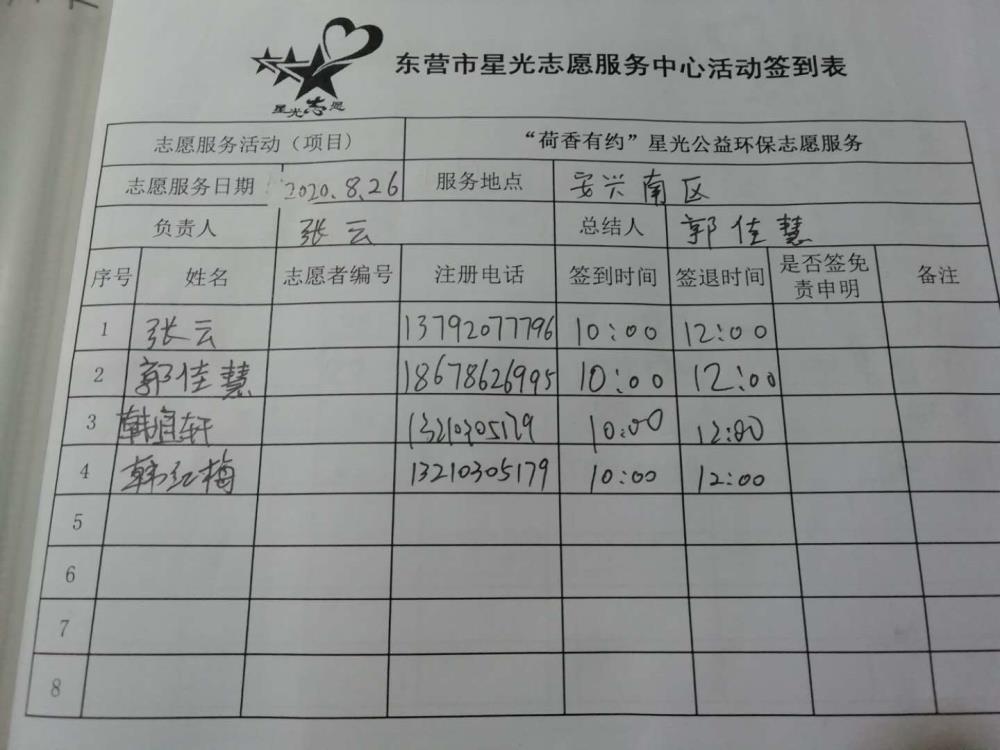 星光志愿
东营市星光志愿服务中心活动签到表
志愿服务活动（项目） “荷香有约”星光公益环保志愿服务
志愿服务日期 2020.8.26 服务地点 安兴南区
负责人 张云 总结人 郭佳慧
序号 姓名 志愿者编号 注册电话 签到时间 签退时间 是否签免责申明 备注
1 张云 13792077796 10:00 12:00
2 郭佳慧 18678626995 10:00 12:00
3 韩 轩 13210305179 10:00 12:00
4 韩红梅 13210305179 10:00 12:00
5
6
7
8